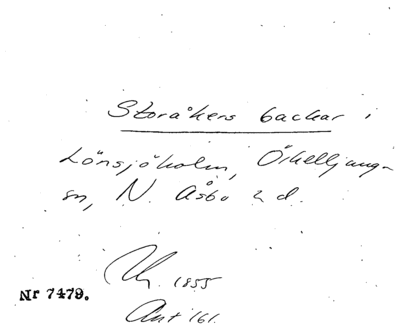 Storåkers backar i
Lönsjöholm, Örkelljung-
sn, N. Åsbo hd.
1855
Nr 7479.
Ant 161.